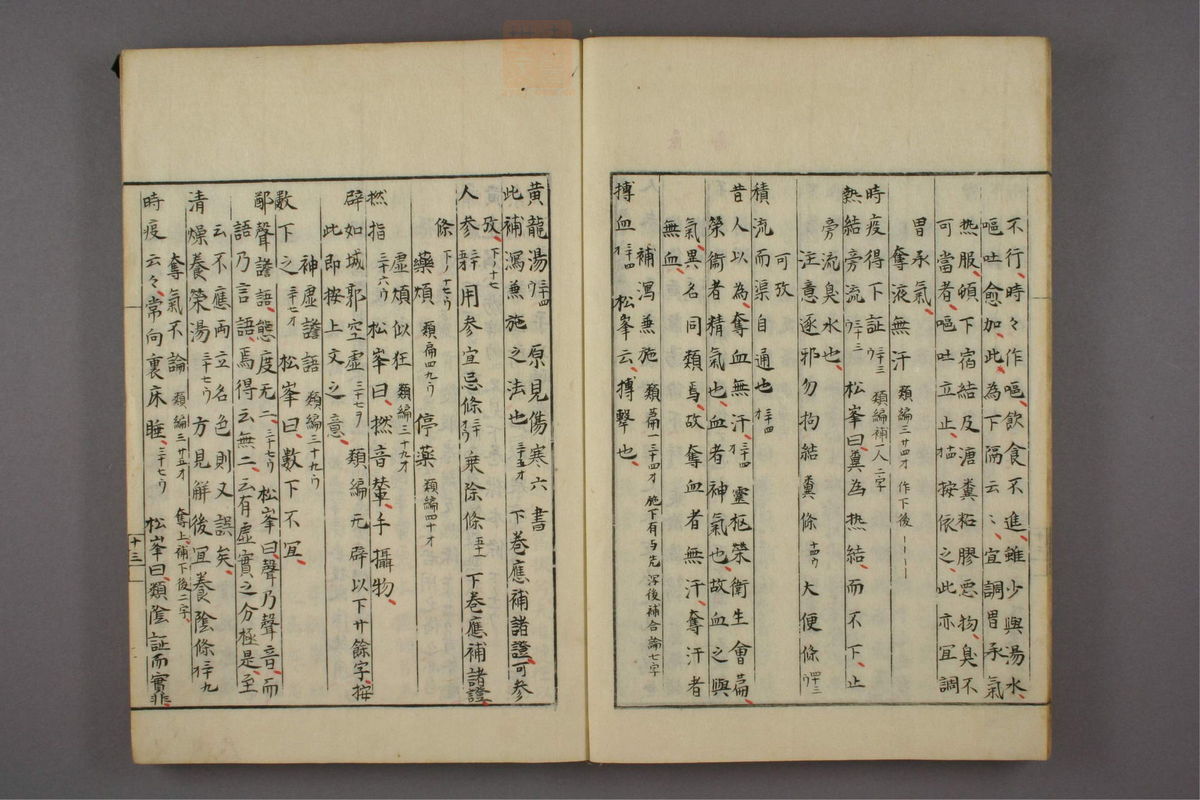 不行、時々作嘔、飲食不進、雖少與湯水、
嘔吐愈加、此為下隔云〻、宜調胃承氣
热服、頓下宿結及溏糞粘膠惡物、臭不
可當者、嘔吐立止、按依之此亦宜調
胃承氣、
奪液無汗 類編三廿四才 作下後
時疫得下証 三十三 類編補一人二字
熱結旁流 三十三ウ 松峯曰、糞為热結、而不下、止
旁流臭水也、
注意逐邪勿拘結糞條 十四ウ 大便條 四十三ウ
可攷
積流而渠自通也 三十四オ
昔人以為、奪血無汗、三十四オ 靈枢榮衛生會篇、
榮衞者精氣也、血者神氣也、故血之與
氣、異名同類焉、故奪血者無汗、奪汗者
無血、
補瀉兼施 類篇一三十四才 施下有与先瀉後補合論七字
搏血 三十四オ 松峯云、搏擊也、
黄龍湯 三十四ウ 原見傷寒六書
此補瀉兼施之法也 三十五才 下巻應補諸證可参
攷、下ノ十七
人参 用参宜忌條 乗除條 五十一 下巻應補諸證、
條 下ノ十七ウ
藥煩 類扁四九ウ 停藥 類編四十才
虚煩似狂 類編三十九才
撚指 三十六ウ 松峯曰、撚音輦、手攝物、
辟如城郭空虚 三十七ヲ 類編元辟以下廿餘字、按
此即按上文之意、
神虚譫語 類編三十九ウ
數下之 三十七才 松峯曰、數下不宜、
鄭聲譫語、態度无二、三十七ウ 松峯曰、聲乃聲音、而
語乃言語、焉得云無二、云有虚實之分極是、至
云不應兩立名色則又誤矣、
清燥養榮湯 三十七ウ 方見解後宜養陰條
奪氣不論 類編三廿五才 奪上補下後二字、
時疫云々、常向裏床睡、三十七ウ 松峯曰、類陰証而實非、
十三